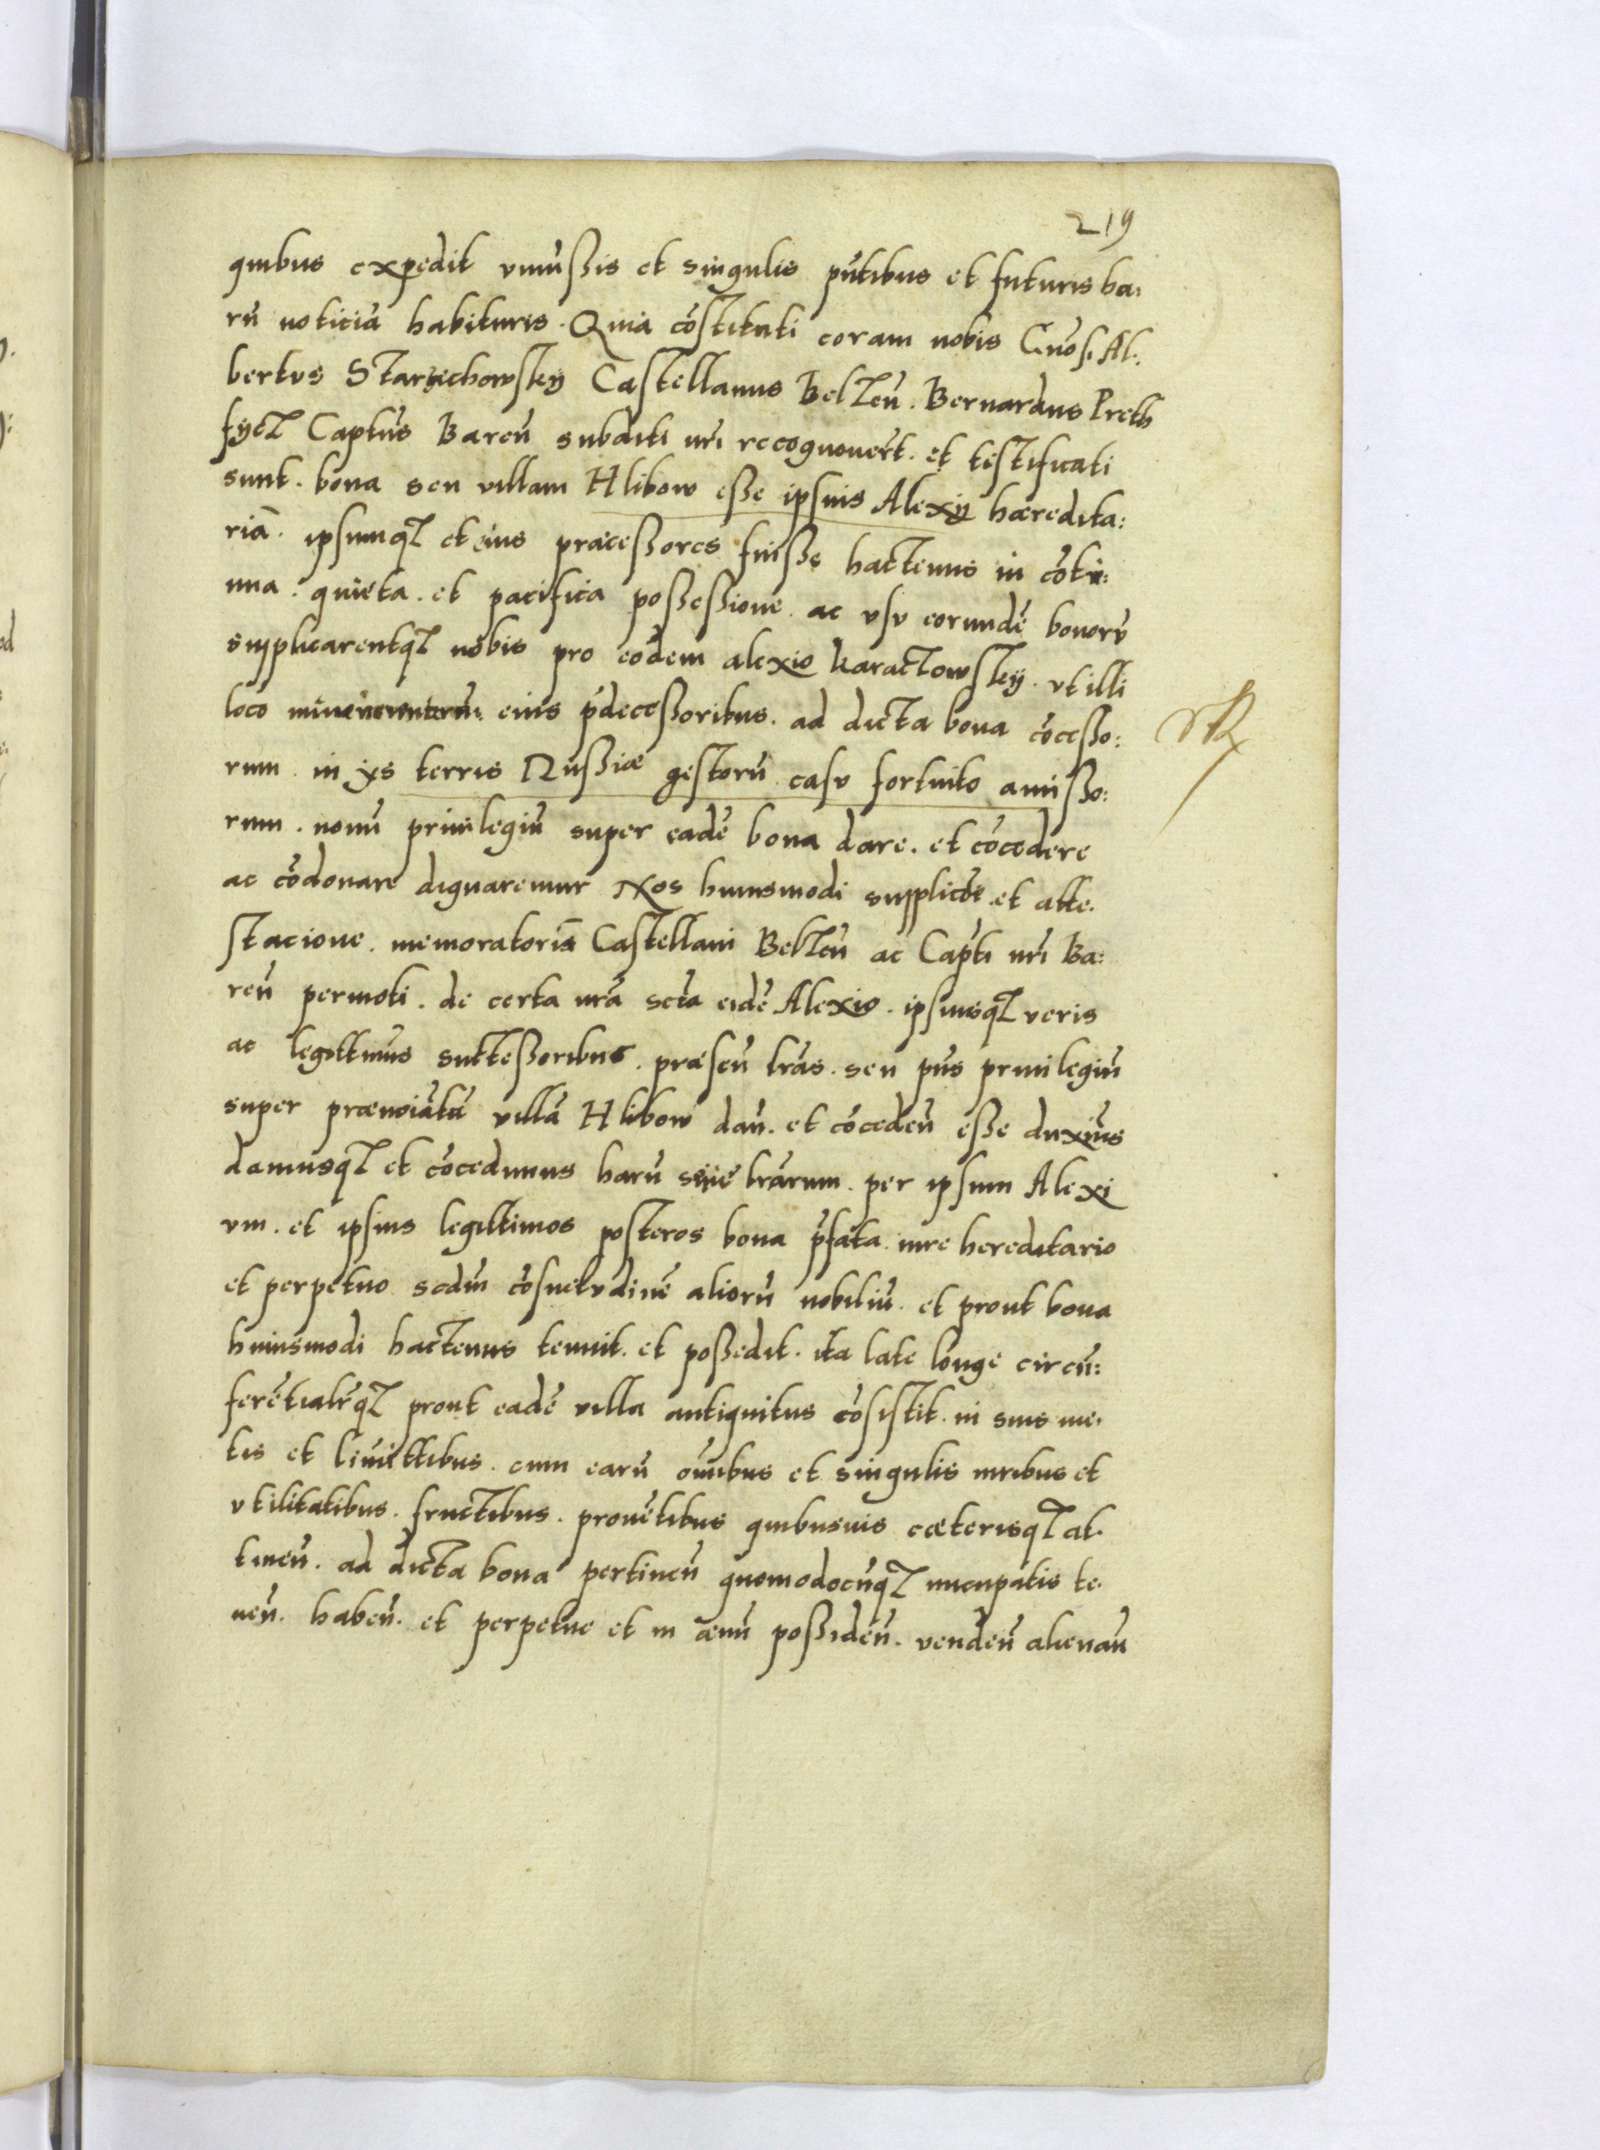 219
quibus expedit vniuersis et singulis pn̄tibus et futuris ha:
rū noticiā habituris. Quia cōstituti coram nobis Gnosi Al:
bertus Starzechowskÿ Castellanus Belzeñ. Bernardus Preth
fÿcz Captūs Bareñ subditi nr̄i recognouer̄t. et testificati
sunt. bona seu villam Hlibow esse ipsius Alexÿ hæredita:
riā. ipsumqz et eius præcessores fuisse hactenus in cōti:
nua. quieta. et pacifica possessione. ac vsv eorundē bonorv̄
supplicarentqz nobis pro eodem alexio karaczowskÿ. vt illi
loco eius p̄decessoribus. ad dicta bona cōcesso:
rum in ÿs terris Russiæ gestorū casv fortuito amisso:
rum. nouū priuilegiū super eadē bona dare. et cōcedere
ac cōdonare dignaremur Nos huiusmodi supplicōe et atte.
stacione. memoratorū Castellani Belzeñ ac Capti nr̄i Ba:
reñ permoti. de certa nr̄a sciā eidē Alexio. ipsiusqz veris
ac legittimis suttessoribus. præseñ lrās. seu pn̄s priuilegiū
super prænoīatā villā Hlibow dañ. et cōcedeñ esse duxim̄us
damusqz et cōcedimus harū serie lrārum. per ipsum Alexi
vm. et ipsius legittimos posteros bona p̄fata iure hereditario
et perpetuo secdm̄ cōsuetvdinē aliorū nobiliū. et prout bona
huiusmodi hactenus tenuit. et possedit. ita late longe circū:
ferētialr̄qz prout eadē villa antiquitus cōsistit. in suis me.
tis et limittibus. cum earū om̄ibus et singulis iuribus et
vtilitatibus. fructibus. prouētibus quibusuis cæterisqz at.
tineñ. ad dicta bona pertineñ quomodocūqz nūcupatis te.
neñ. habeñ. et perpetue et in æuū possideñ. vendeñ alienañ